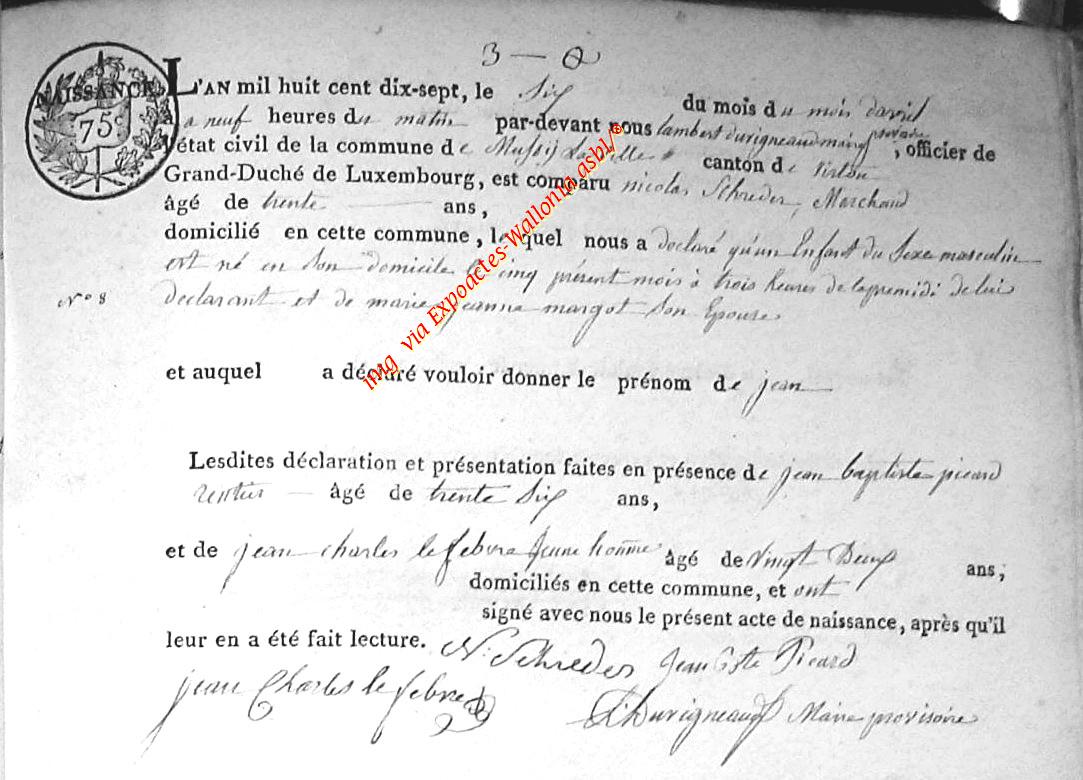 3 — 
NAISSANCE
75c
L'AN mil huit cent dix-sept, le Six du mois du mois davril
a neuf heures du matin par-devant nous lambert durigneaux maire provisoire, officier de
l'état civil de la commune de Mussy Laville canton de Virton
Grand-Duché de Luxembourg, est comparu nicolas Schreder, Marchand
âgé de trente ans,
domicilié en cette commune, lequel nous a déclaré qu'un Enfant du Sexe masculin
est né en Son domicile le cinq présent mois à trois heures de lapremidi de lui
N° 8 declarant et de marie jeanne margot Son Epouse
et auquel a déclaré vouloir donner le prénom de jean
Lesdites déclaration et présentation faites en présence de jean baptiste picard
rentier âgé de trente Six ans,
et de jean charles lefebvre jeune homme âgé de Vingt Deux ans,
domiciliés en cette commune, et ont
signé avec nous le présent acte de naissance, après qu'il
leur en a été fait lecture. N. Schreder Jean Bste Picard
jean Charles lefebvre
L Durigneaux Maire provisoire
img via Expoactes-Wallonia.asbl/®